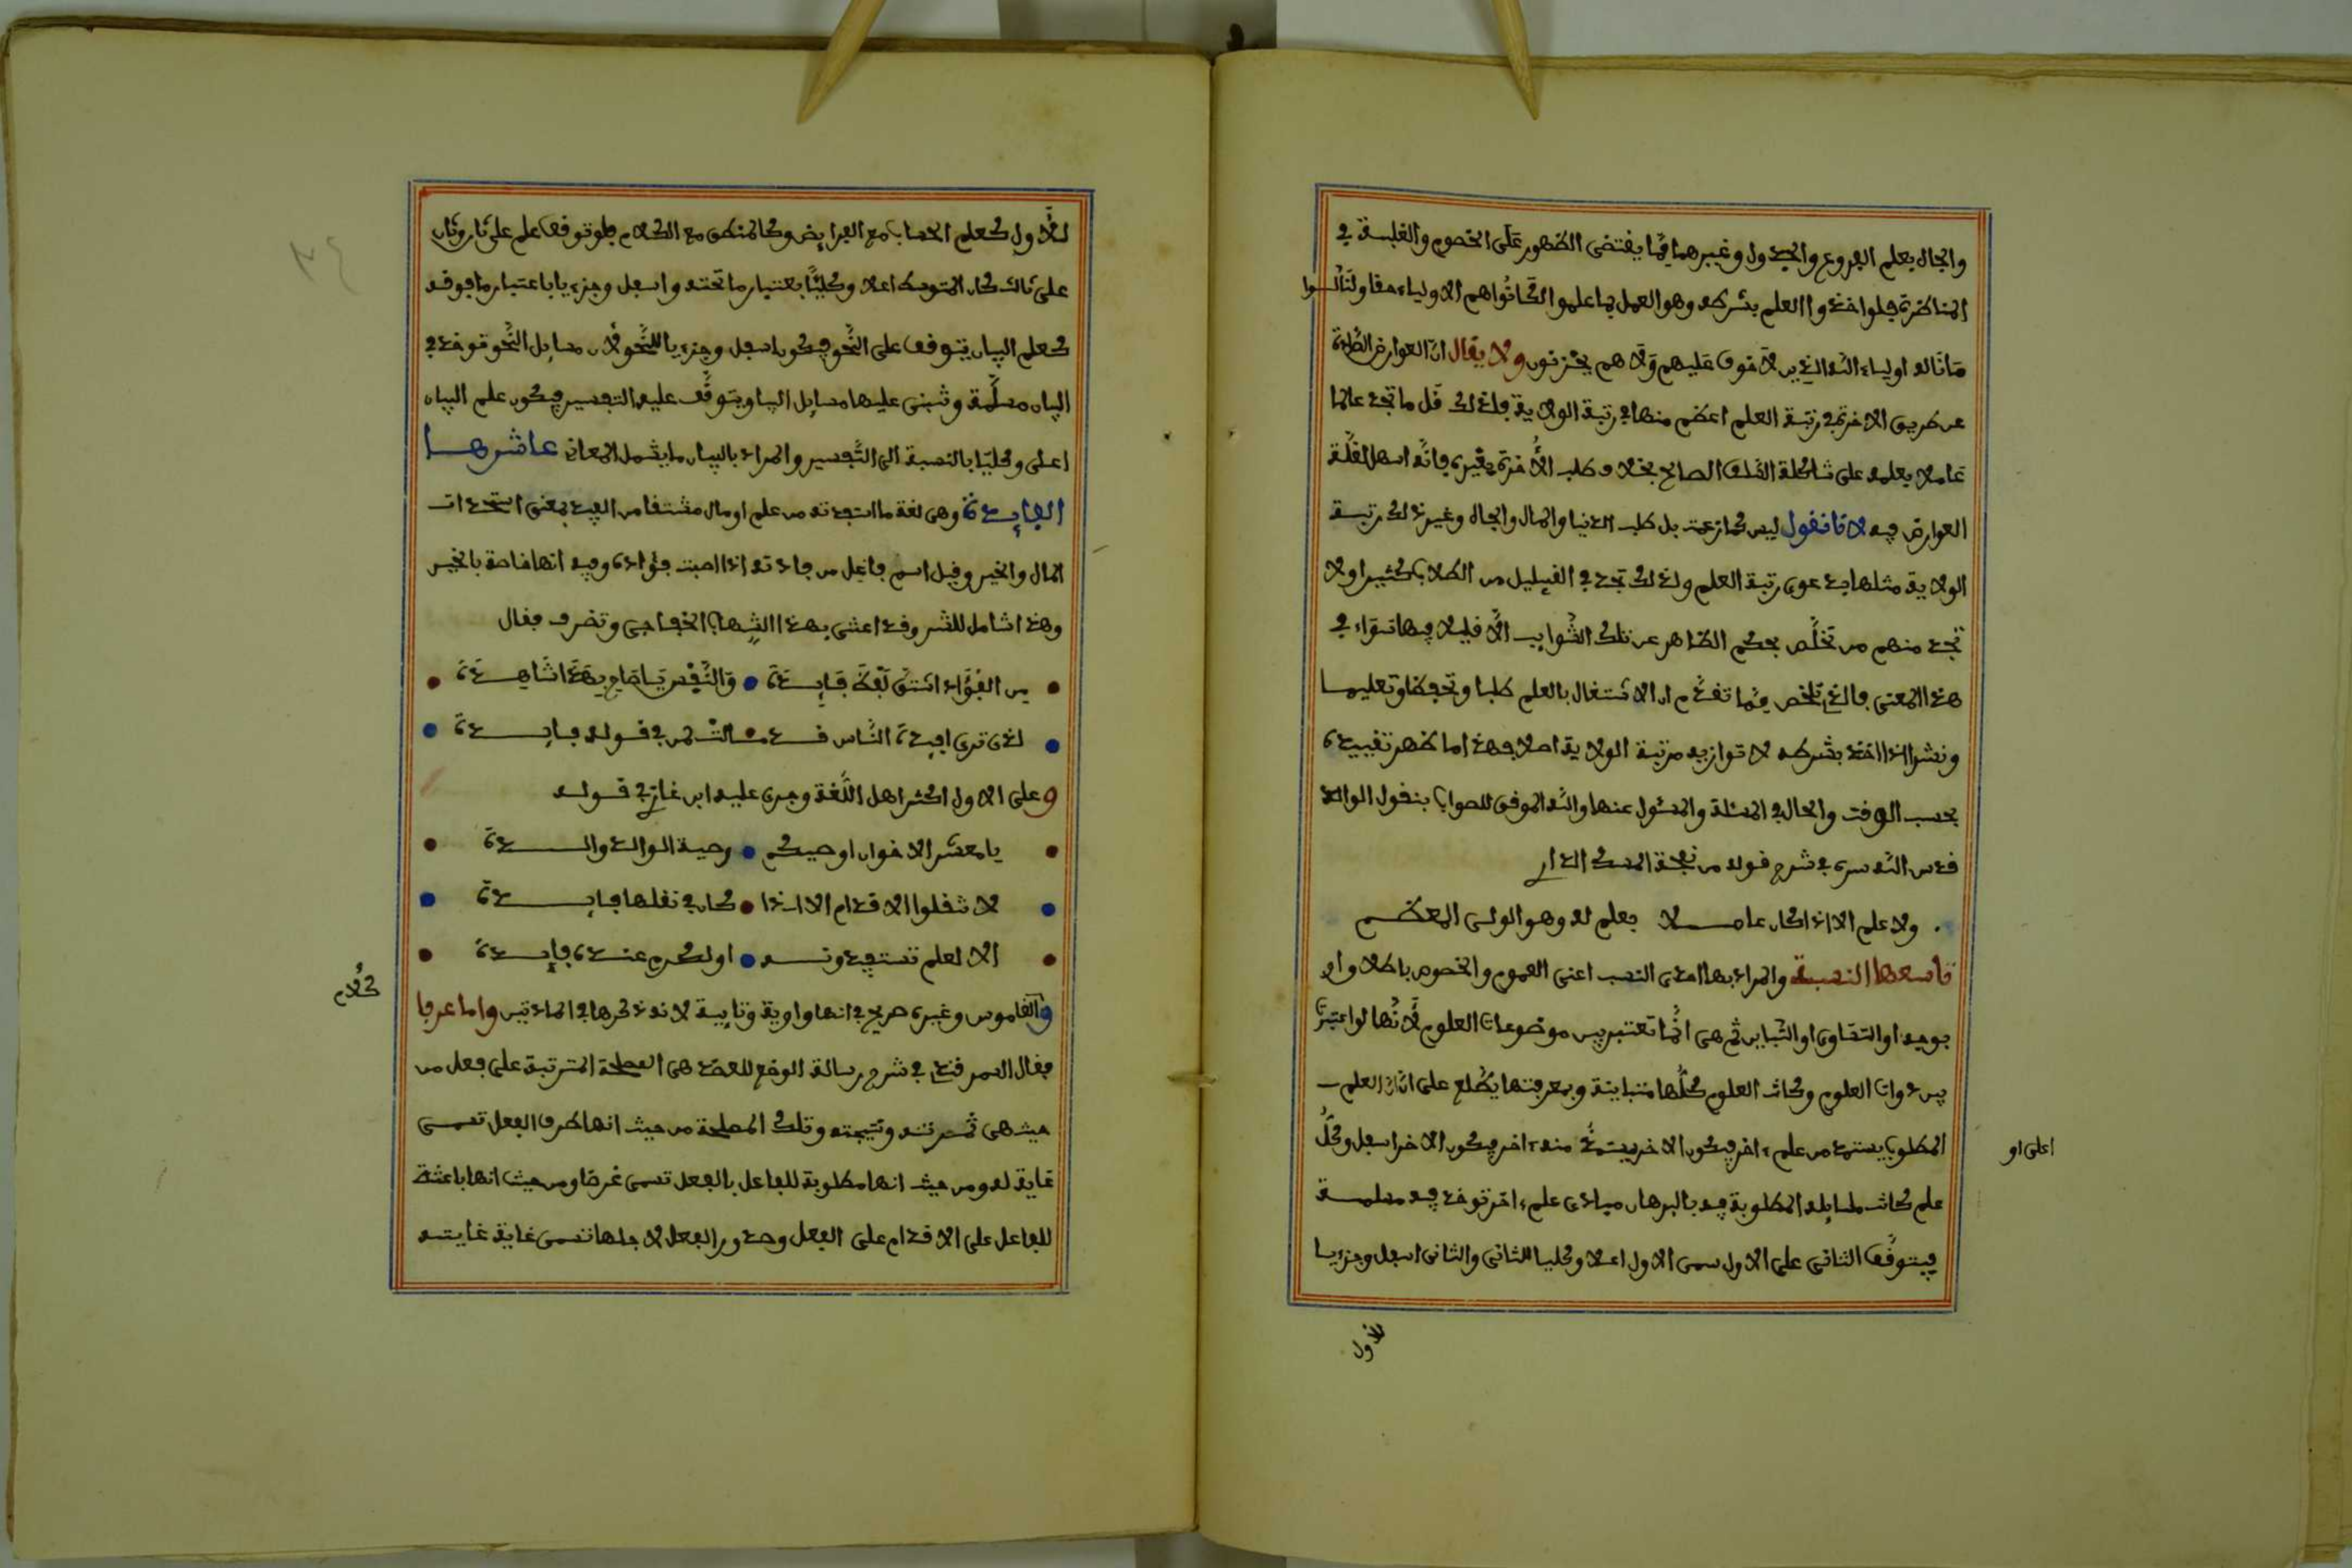 والجاه بعلم الفروع والجدول وغيرهما مما يقتضي الظهور على الخصوم والغلبة في
المناظرة فلو اخذوا العلم بشرطه وهو العمل بما علموا لكانوا هم الاولياء حقا ولنالوا
ما ناله اولياء الله الذين لا خوف عليهم ولا هم يحزنون ولا يقال ان العوارض الطارئة
عن طريق الاخرة في رتبة العلم اعظم منها في رتبة الولاية فلذلك قل ما تجد عالما
عاملا بعلمه على شاكلة السلف الصالح بخلاف طلب الاخرة بغيره فانه اسهل لقلة
العوارض فيه لانا نقول ليس كما زعمت بل طلب الدنيا والمال والجاه وغير ذلك رتبة
الولاية مثلها بدعوى رتبة العلم ولذلك تجد في القليل من الطلاب كثيرا ولا
تجد منهم من تخلص بحكم الظاهر عن تلك الشوايب الا قليلا فيهما سواء في
هذا المعنى فالذي تلخص مما تقدم ان الاشتغال بالعلم طلبا وتحفظا وتعليما
ونشرا اذا اخذ بشرطه لا توازيه مرتبة الولاية اصلا فهذا ما ظهر تقييده
بحسب الوقت والحال في المسئلة والمسئول عنها والله الموفق للصواب بنقول الوالد
قدس الله سره في شرح قوله من نفحة المسك الداري
ولا علم الا اذا كان عاملا بعلم له وهو الولي المعظم
تاسعها النسبة والمراد بها احدى النسب اعنى العموم والخصوص باطلاق او
بوجه او التساوي او التباين ثم هي انما تعتبر بين موضوعات العلوم لانها لو اعتبرت
بين ذوات العلوم وكانت العلوم كلها متباينة وبمعرفتها يطلع على ان العلم
المطلوب يستمد من علم اخر فيكون الاخر يستمد منه اخر فيكون الاخر اسفل وكل
اعلى او
علم كانت مسايله المطلوبة فيه بالبرهان مبادى علم اخر توخذ فيه مسلمة
فيتوقف الثاني على الاول سمى الاول اعلا وكليا للثاني والثاني اسفل وجزءيا
للاول
للاول كعلم الحساب مع الفرايض وكالمنطق مع الكلام فلو توقف علم على ثان وثان
على ثالث كان المتوسط اعلا وكليا باعتبار ما تحته واسفل وجزءيا باعتبار ما فوقه
كعلم البيان يتوقف على النحو فيكون اسفل وجزءيا للنحو لان مسايل النحو توخذ في
البيان مسلمة وتبنى عليها مسايل البيان ويتوقف عليه التفسير فيكون علم البيان
اعلى وكليا بالنسبة الى التفسير والمراد بالبيان ما يشمل المعاني عاشرها
الفايدة وهي لغة ما استفدته من علم او مال مشتقا من الفيد بمعنى استحداث
المال والخير وقيل اسم فاعل من فادته اذا اصبت فؤاده وفيه انها خاصة بالخير
وهذا شامل للشر وقد اعتنى بهذا الشهاب الخفاجي وتضرف فقال
من الفؤاد اشتق لفظ فايدة والنفس يا صاح بهذا شاهدة
لذى ترى افيدة الناس قد مالت لمن في قوله فايدة
وعلى الاول اكثر اهل اللغة وجرى عليه ابن غازي في قوله
يا معشر الاخوان اوصيكم وصية الوالد والوالدة
لا تنقلوا الاقدام الا اذا كان في نقلها فايدة
الا لعلم تستفيدونه او لكريم عنده فايدة
كلام
والقاموس وغيره صريح في انها واوية ويايية لانه ذكرها في المادتين واما عرفا
فقال السمرقندي في شرح رسالة الوضع للعضد هي المصلحة المترتبة على فعل من
حيث هي ثمرته ونتيجته وتلك المصلحة من حيث انها طرف الفعل تسمى
غاية له ومن حيث انها مطلوبة للفاعل بالفعل تسمى غرضا ومن حيث انها باعثة
للفاعل على الاقدام على الفعل وصدور الفعل لاجلها تسمى غاية غايته